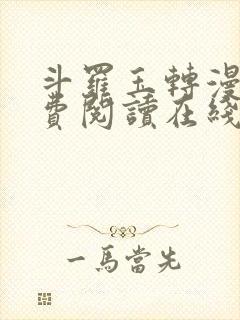 斗羅玉轉漫
費閱讀在綫
一馬當先